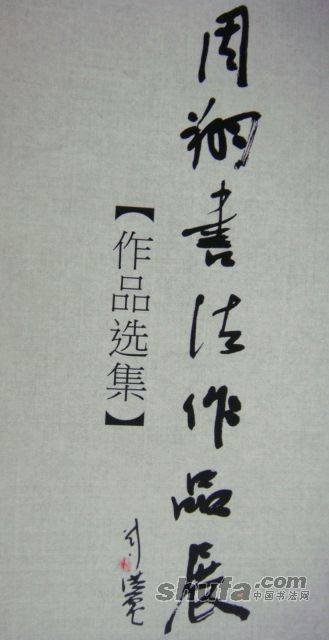 周翔書法作品展
【作品选集】
shufa.com
中国书法网